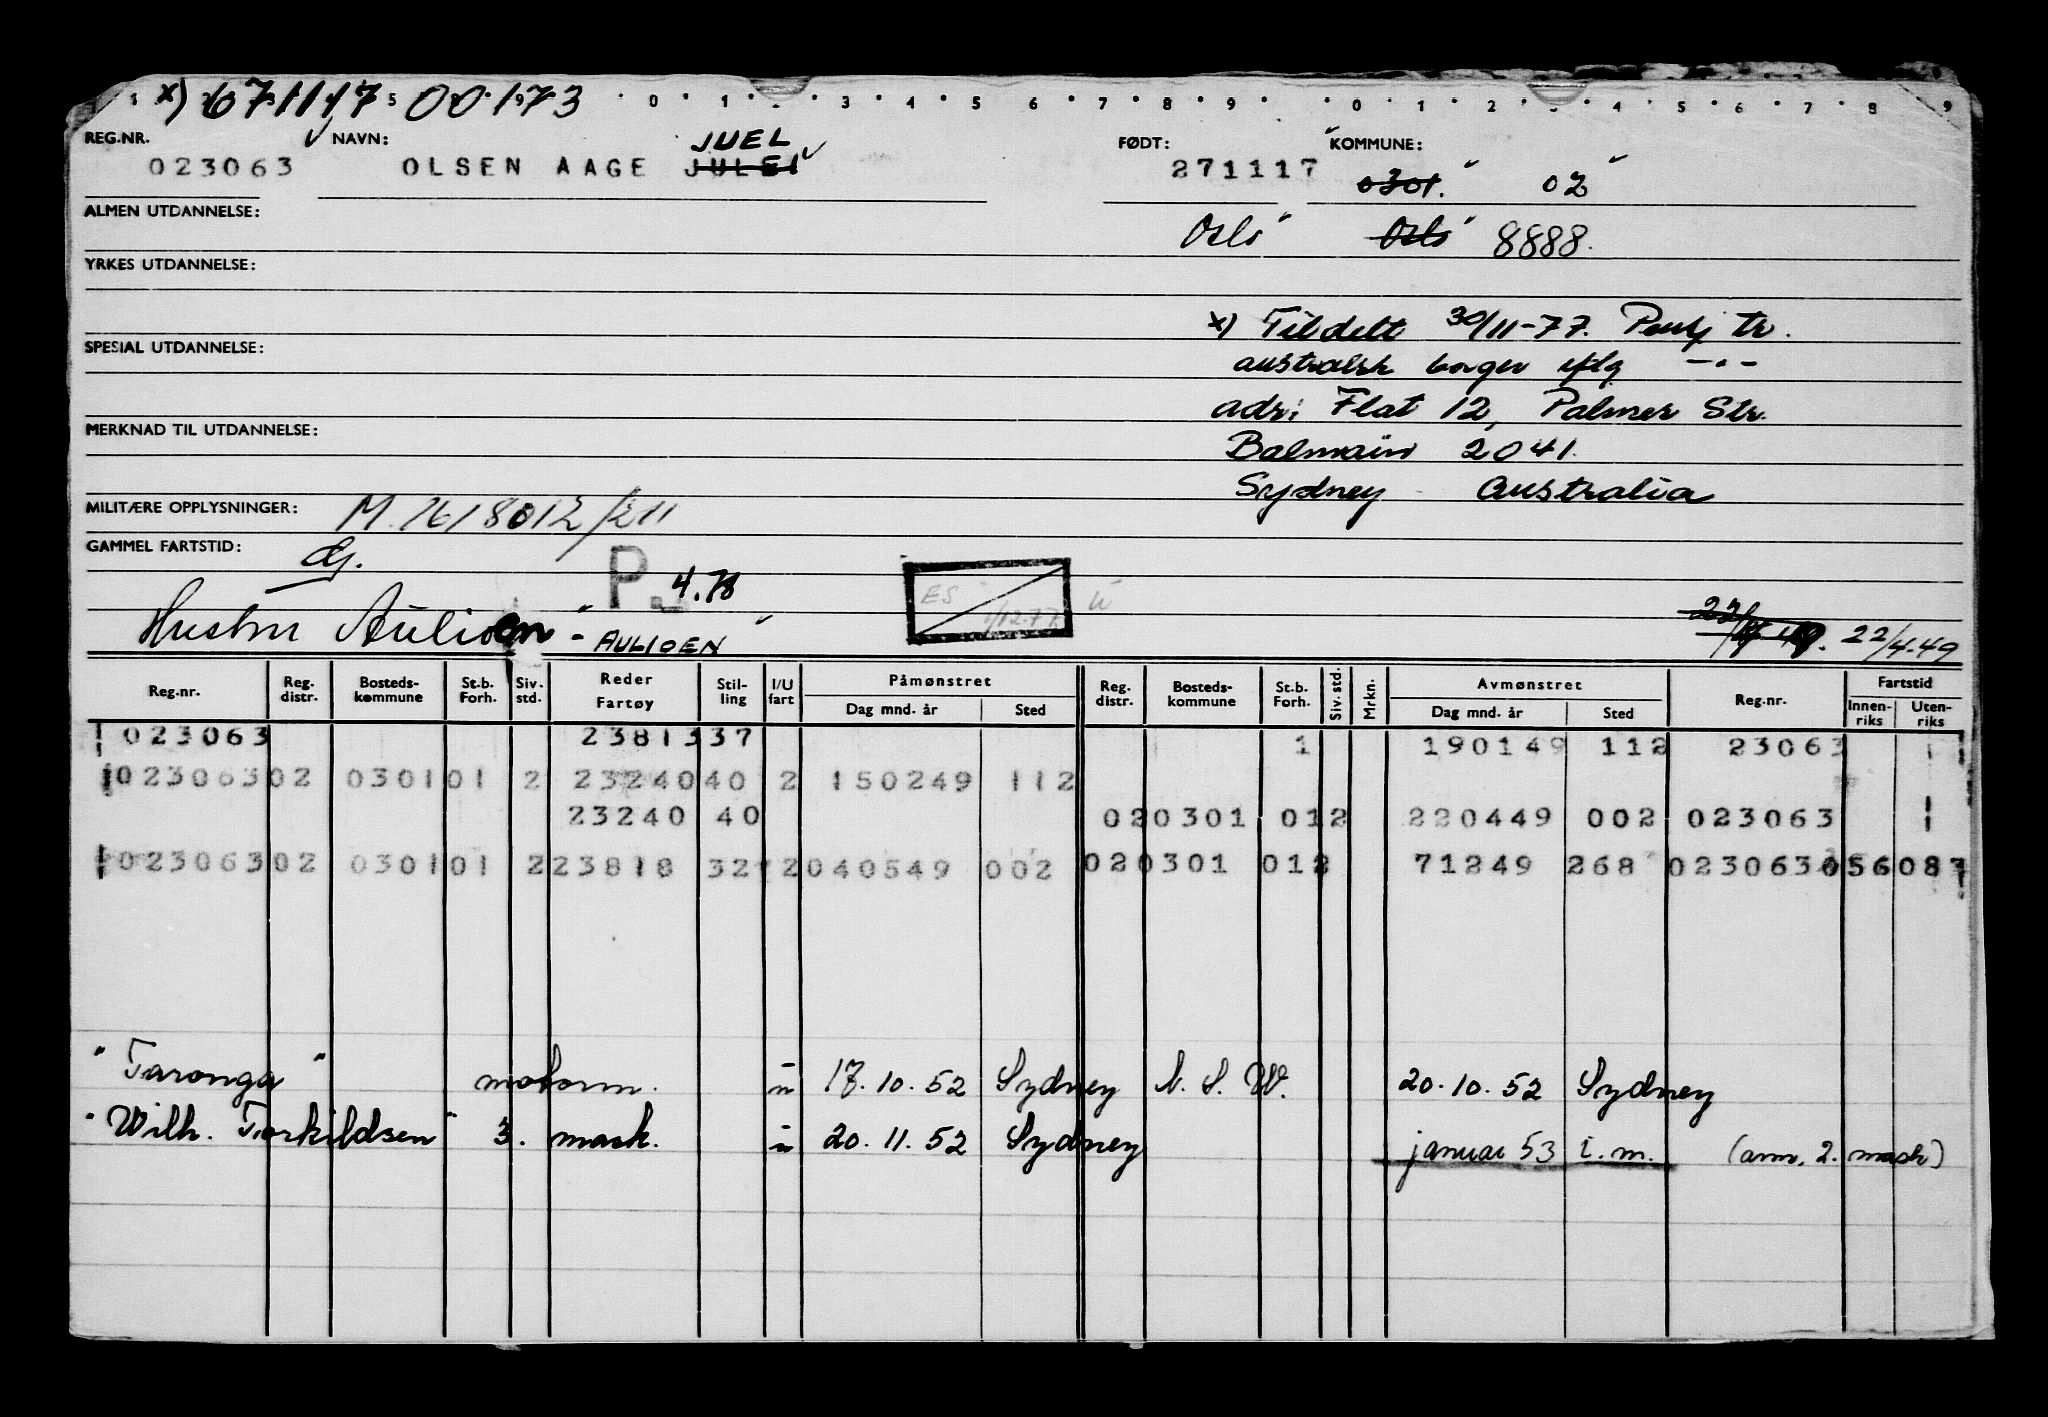 x) 671117 00173
0 1 3 4 5 6 7 8 9 0 1 2 4 5 6 7 8 9
REG.NR. NAVN: JUEL FØDT: KOMMUNE:
023063 OLSEN AAGE JULEI 271117 0301. 02
ALMEN UTDANNELSE: Oslo Oslo 8888.
YRKES UTDANNELSE:
x) Tildelt 30/11-77. Penkj tr.
SPESIAL UTDANNELSE:
australsk borger iflg -.-
adr: Flat 12, Palmer Str.
MERKNAD TIL UTDANNELSE:
Balmain 2041.
Sydney Australia
MILITÆRE OPPLYSNINGER: M. 7618012/211
GAMMEL FARTSTID:
P. 4.78
ES 1/12-77
Hustru Aulioen - "AULIOEN"
22/4.49
Reg.nr. Reg. distr. Bosteds-kommune St.b. Forh. Siv. std. Reder Fartøy Stil-ling I/U fart Påmønstret Dag mnd. år Sted Reg. distr. Bosteds-kommune St.b. Forh. Siv. std. Mrkn. Avmønstret Dag mnd. år Sted Reg.nr. Fartstid Innen-riks Uten-riks
023063 23813 37 1 190149 112 23063
023063 02 0301 01 2 23240 40 2 150249 112
23240 40 02 0301 01 2 220449 002 023063
023063 02 0301 01 2 23818 32 2 040549 002 02 0301 01 2 71249 268 023063 056 083
"Taronga" motorm. u 17.10.52 Sydney N.S.W. 20.10.52 Sydney
"Wilh. Torkildsen" 3. mask. u 20.11.52 Sydney januar 53 i.m. (anm. 2. mask)